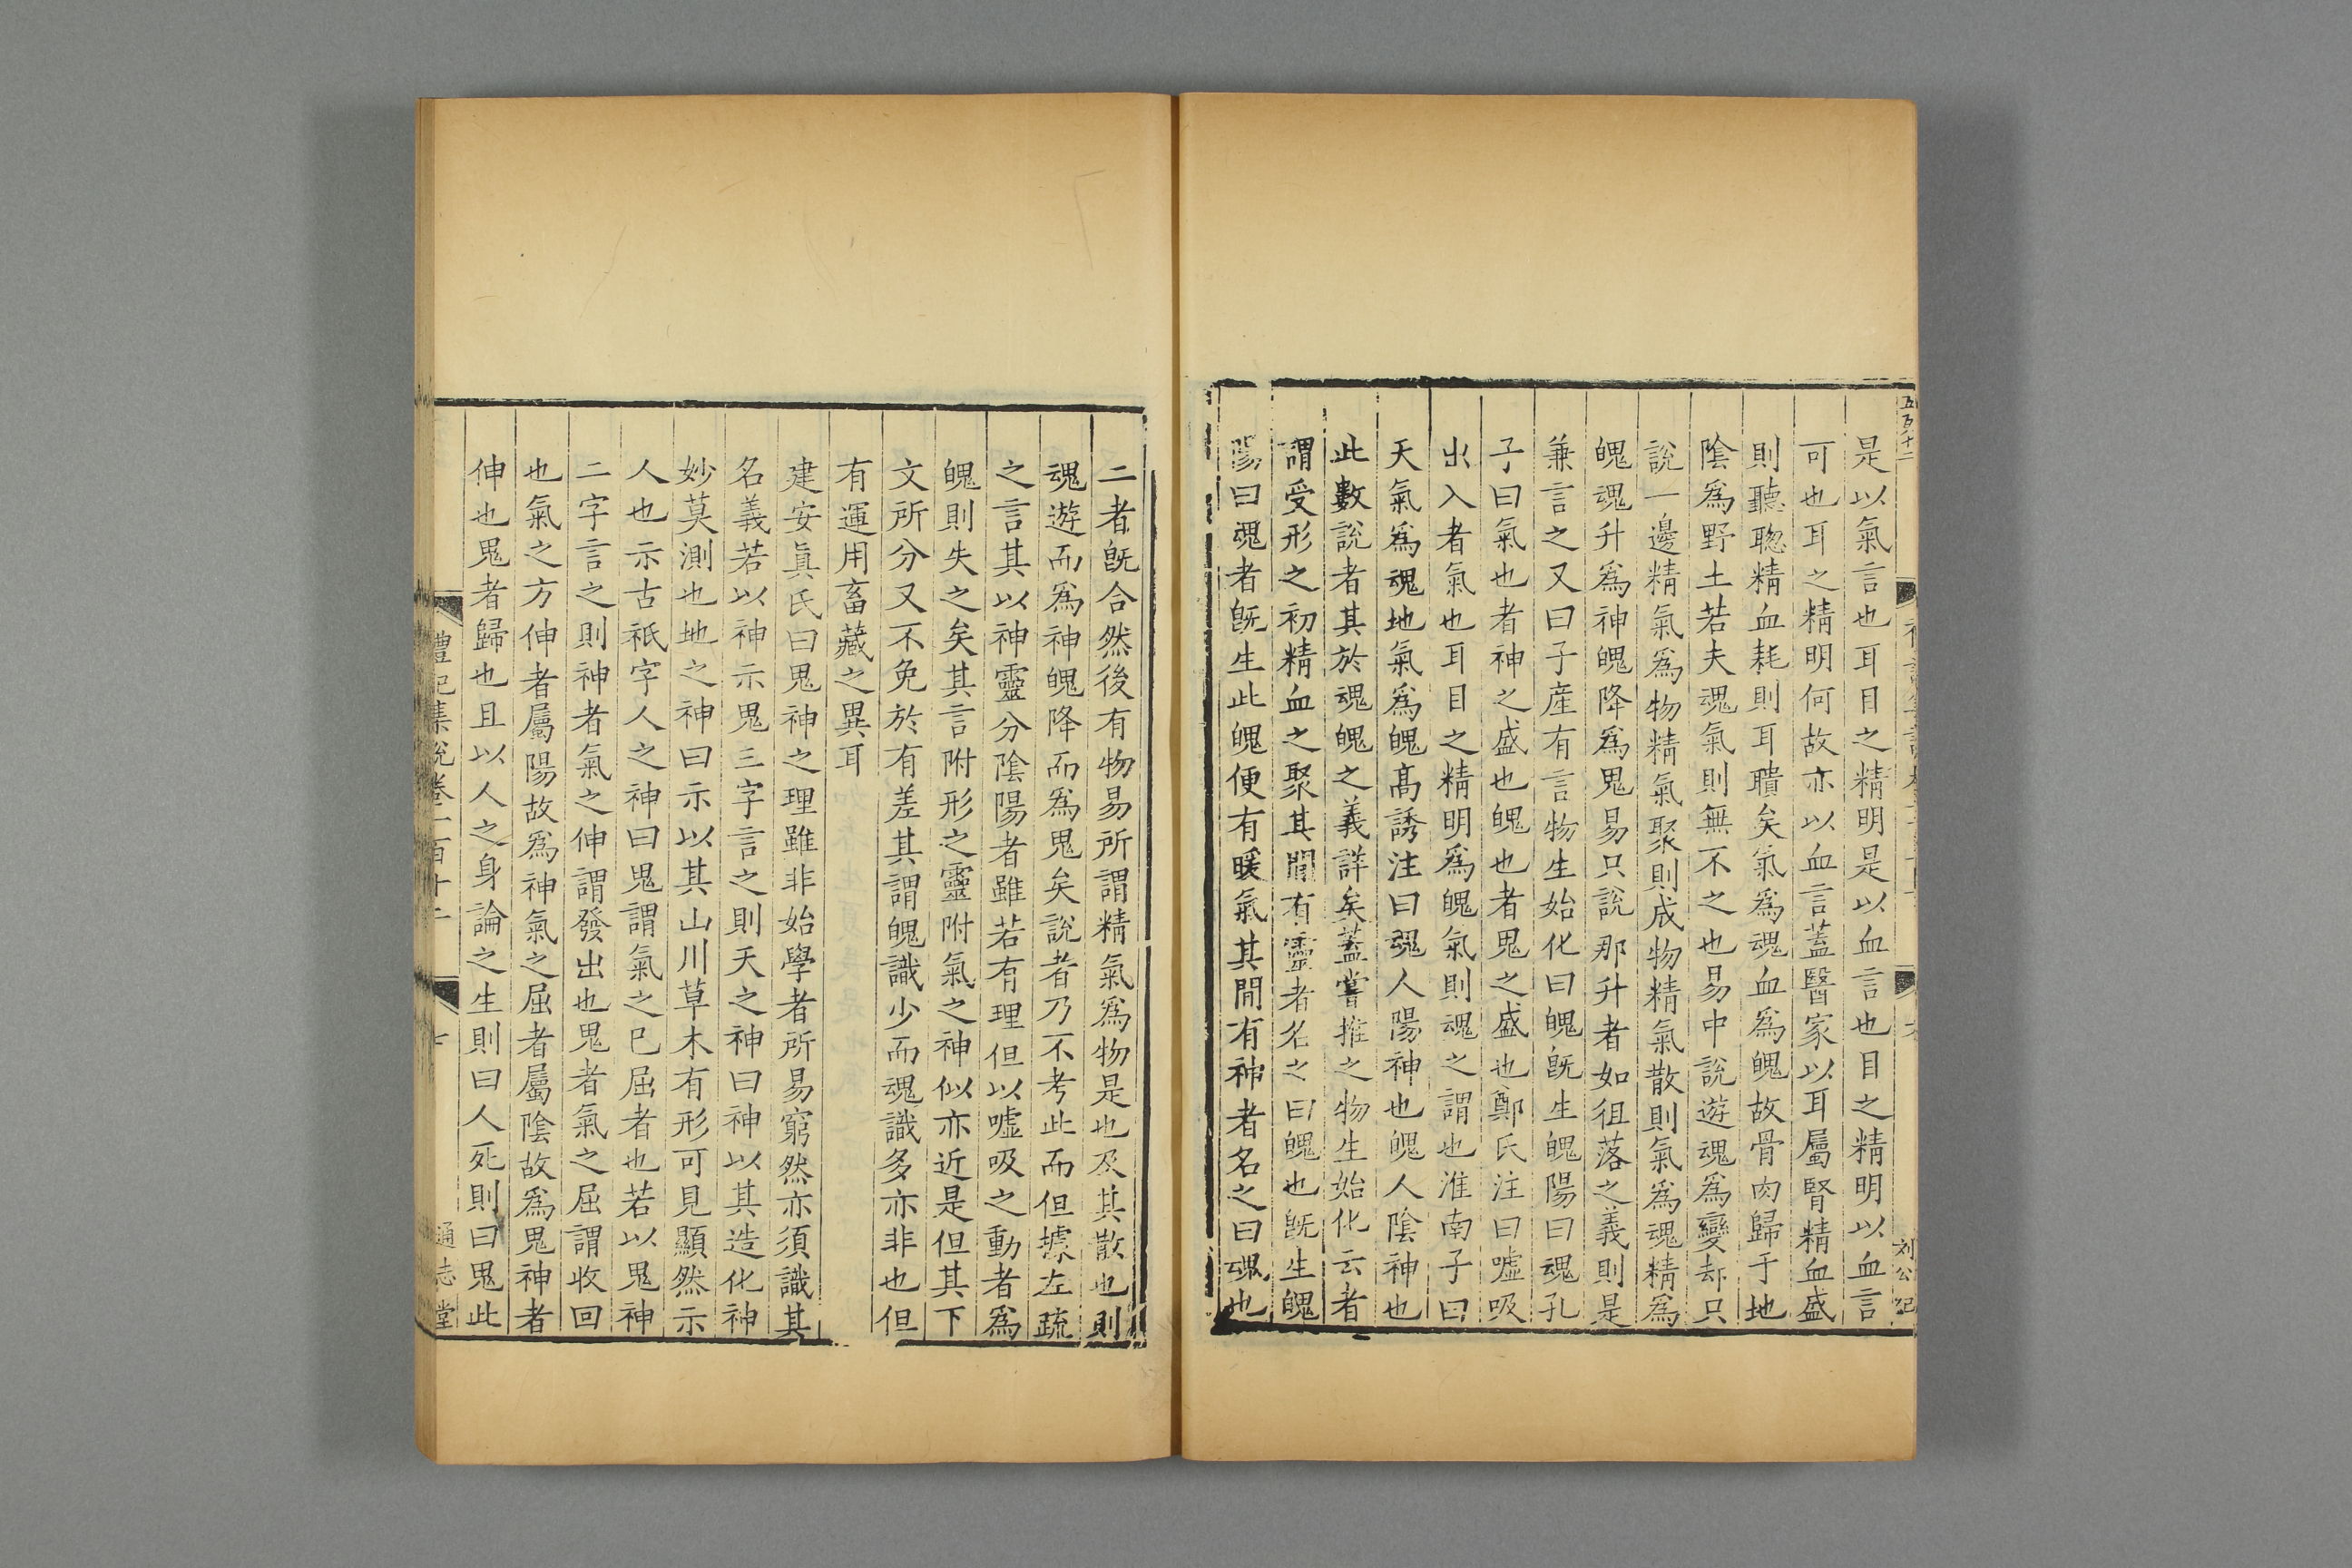 是以氣言也耳目之精明是以血言也目之精明以血言
可也耳之精明何故亦以血言蓋醫家以耳屬腎精血盛
則聽聦精血耗則耳聵矣氣爲魂血爲魄故骨肉歸于地
陰爲野土若夫魂氣則無不之也易中說遊魂爲變却只
說一邊精氣爲物精氣聚則成物精氣散則氣爲魂精爲
魄魂升爲神魄降爲鬼易只說那升者如徂落之義則是
兼言之又曰子産有言物生始化曰魄旣生魄陽曰魂孔
子曰氣也者神之盛也魄也者鬼之盛也鄭氏注曰噓吸
出入者氣也耳目之精明爲魄氣則魂之謂也淮南子曰
天氣爲魂地氣爲魄高誘注曰魂人陽神也魄人陰神也
此數說者其於魂魄之義詳矣蓋嘗推之物生始化云者
謂受形之初精血之聚其閒有靈者名之曰魄也旣生魄
陽曰魂者旣生此魄便有暖氣其閒有神者名之曰魂也
二者旣合然後有物易所謂精氣爲物是也及其散也則
魂遊而爲神魄降而爲鬼矣說者乃不考此而但據左疏
之言其以神靈分陰陽者雖若有理但以噓吸之動者爲
魄則失之矣其言附形之靈附氣之神似亦近是但其下
文所分又不免於有差其謂魄識少而魂識多亦非也但
有運用畜藏之異耳
建安眞氏曰鬼神之理雖非始學者所易窮然亦須識其
名義若以神示鬼三字言之則天之神曰神以其造化神
妙莫測也地之神曰示以其山川草木有形可見顯然示
人也示古祇字人之神曰鬼謂氣之已屈者也若以鬼神
二字言之則神者氣之伸謂發出也鬼者氣之屈謂收回
也氣之方伸者屬陽故爲神氣之屈者屬陰故爲鬼神者
伸也鬼者歸也且以人之身論之生則曰人死則曰鬼此
禮記集說卷一百十二
七
通志堂